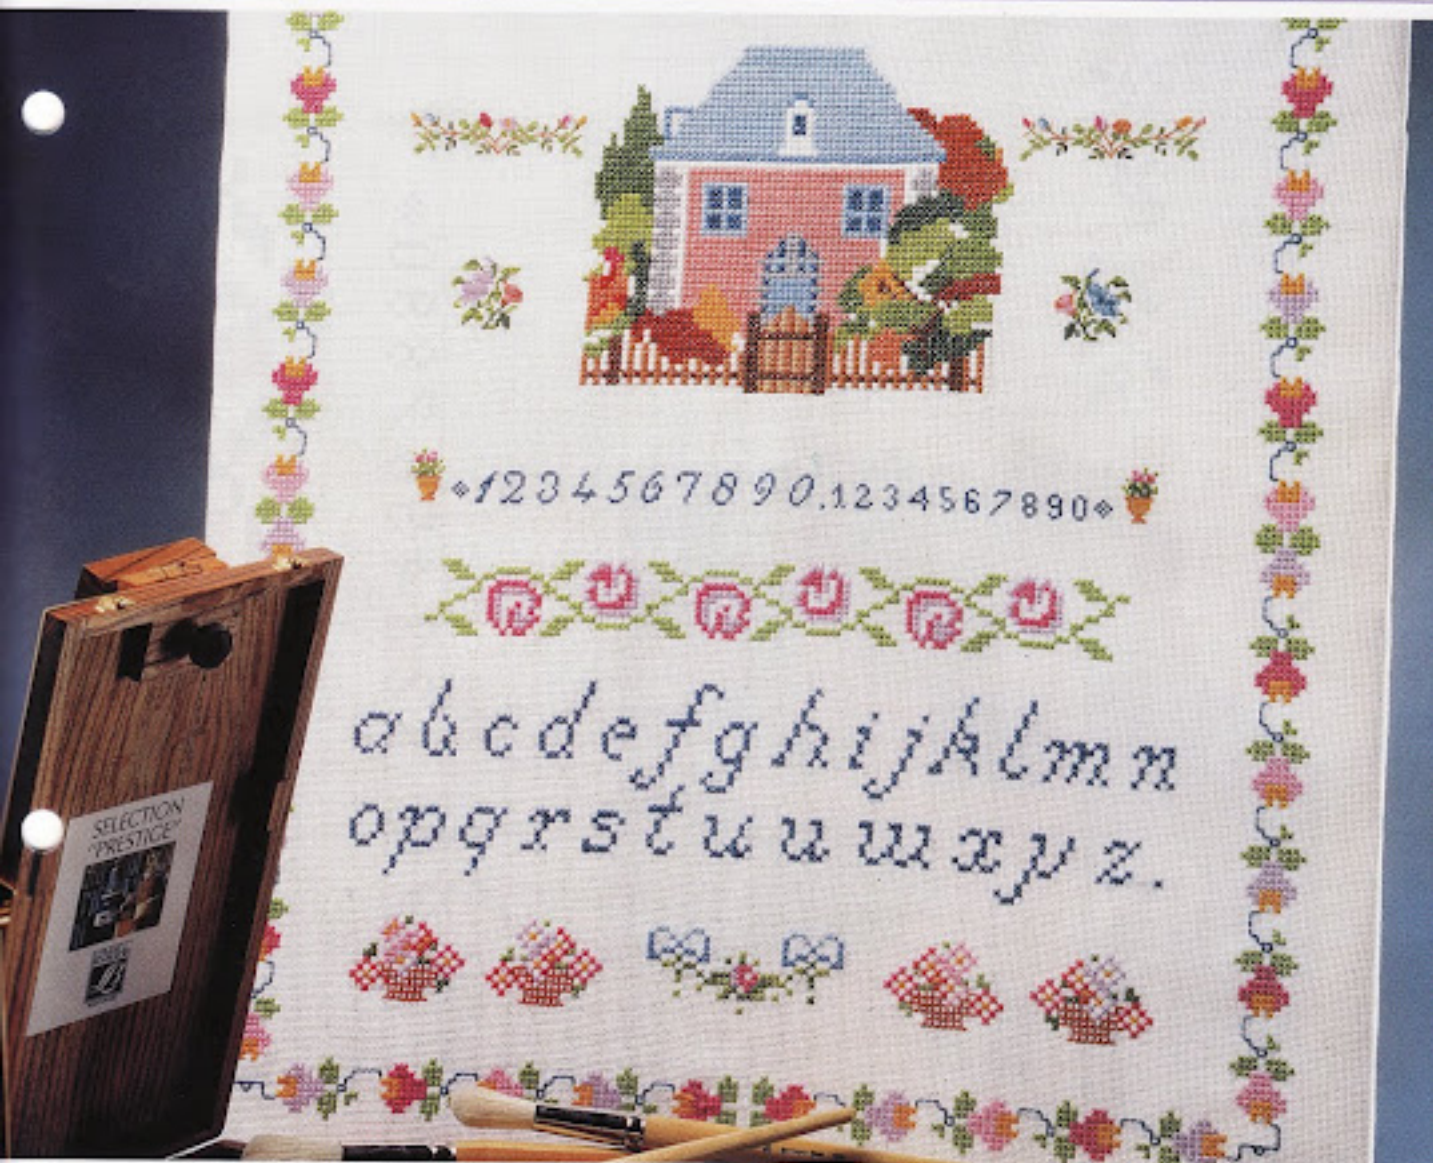 1234567890.1234567890
abcdefghijklmn
opqrstuuwxyz.
SELECTION
"PRESTIGE"